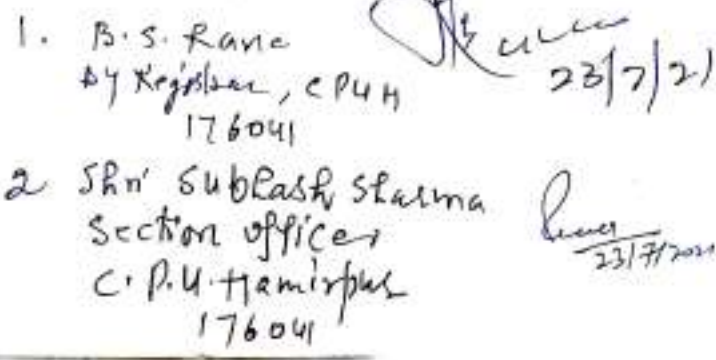 1. B.S. Rana
Dy Registrar, CPUH
176041
23/7/21
2 Shri Subhash Sharma
Section officer
C.P.U. Hamirpur
176041
23/7/2021